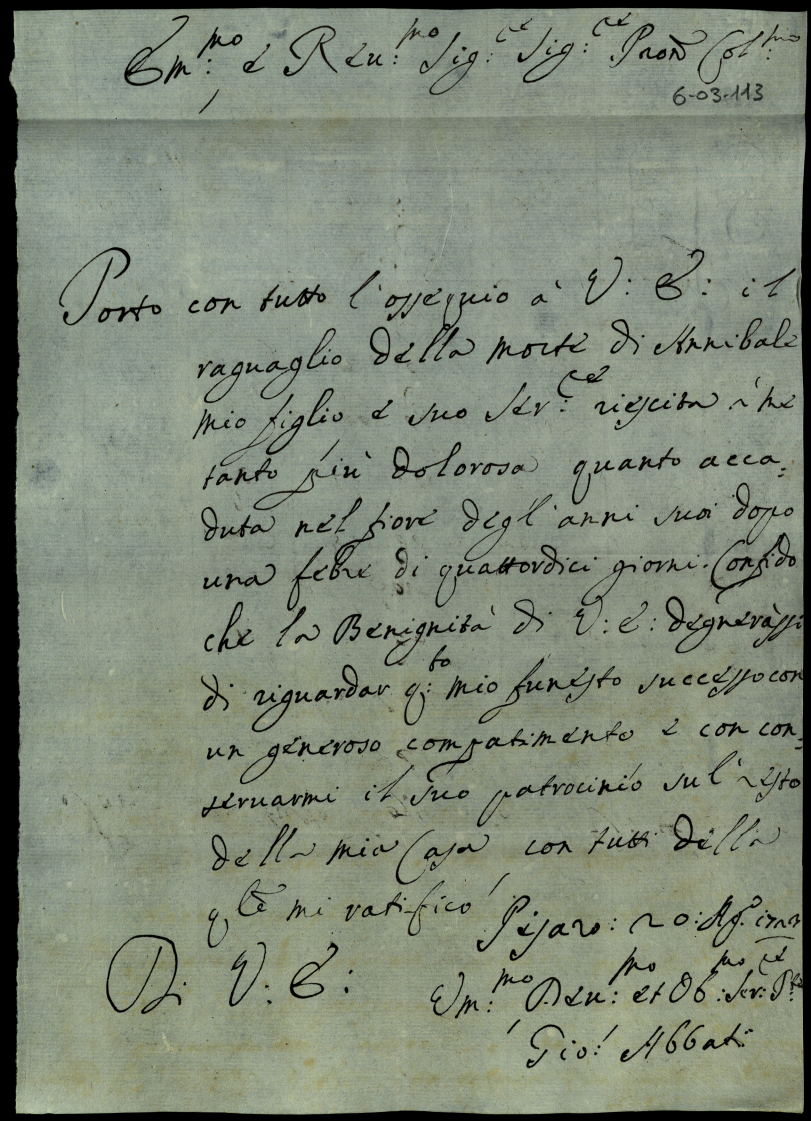 Em:mo e Reu:mo Sig:re Sig:re Pron Col:mo
6-03-113
Porto con tutto l'ossequio à V: E: il
raguaglio della morte di Annibale
mio figlio e suo Ser:re riescita à me
tanto più dolorosa quanto acca:
duta nel fiore degl'anni suoi dopo
una febre di quattordici giorni. Confido
che la Benignità di V: E: degneràssi
di riguardar q:to mio funesto successo con
un generoso compatimento e con con:
seruarmi il suo patrocinio sul resto
della mia Casa con tutti della
qle mi ratifico
Pesaro: 20: Ag:o
Di V: E:
Vm:mo Deu:mo et Ob:mo Ser:re
Gio: Abbati